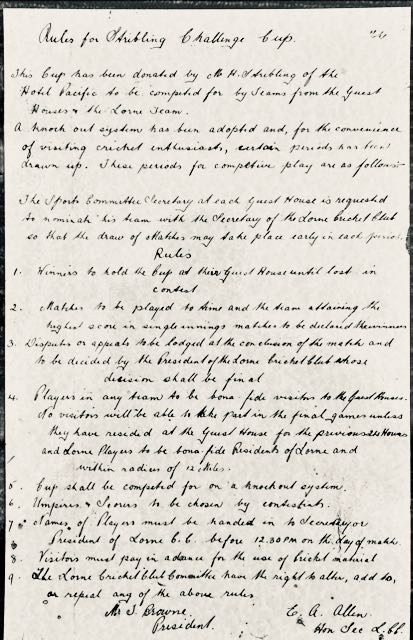 Rules for Stribling Challenge Cup.
This Cup has been donated by Mr H. Stribling of the
Hotel Pacific to be competed for by Teams from the Guest
Houses & the Lorne Team.
A knock out system has been adopted and, for the convenience
of visiting cricket enthusiasts, certain periods has been
drawn up. These periods for compttive play are as follows-
The Sports Committee Secretary at each Guest House is requested
to nominate his team with the Secretary of the Lorne Cricket Club
so that the draw of Matches may take place early in each period.
Rules
1. Winners to hold the Cup at their Guest House until lost in
contest
2. Matches to be played to time and the team attaining the
highest score in single innings matches to be declared the winners
3. Disputes or appeals to be lodged at the conclusion of the match and
to be decided by the President of the Lorne Cricket Club whose
decision shall be final
4. Players in any team to be bona-fide visitors to the Guest Houses.
No visitors will be able to take part in the final games unless
they have resided at the Guest House for the previous 24 Hours
and Lorne Players to be bona-fide Residents of Lorne and
within radius of 12 Miles.
5. Cup shall be competed for on a knockout system.
6. Umpires & Scorers to be chosen by contestants.
7. Names of Players must be handed in to Secretary or
President of Lorne C.C. before 12.30 PM on the day of match
8. Visitors must pay in advance for the use of cricket material
9. The Lorne Cricket Club Committee have the right to alter, add to,
or repeat any of the above rules
Mr S. Browne. C. A. Allen.
President. Hon Sec L.C.C.